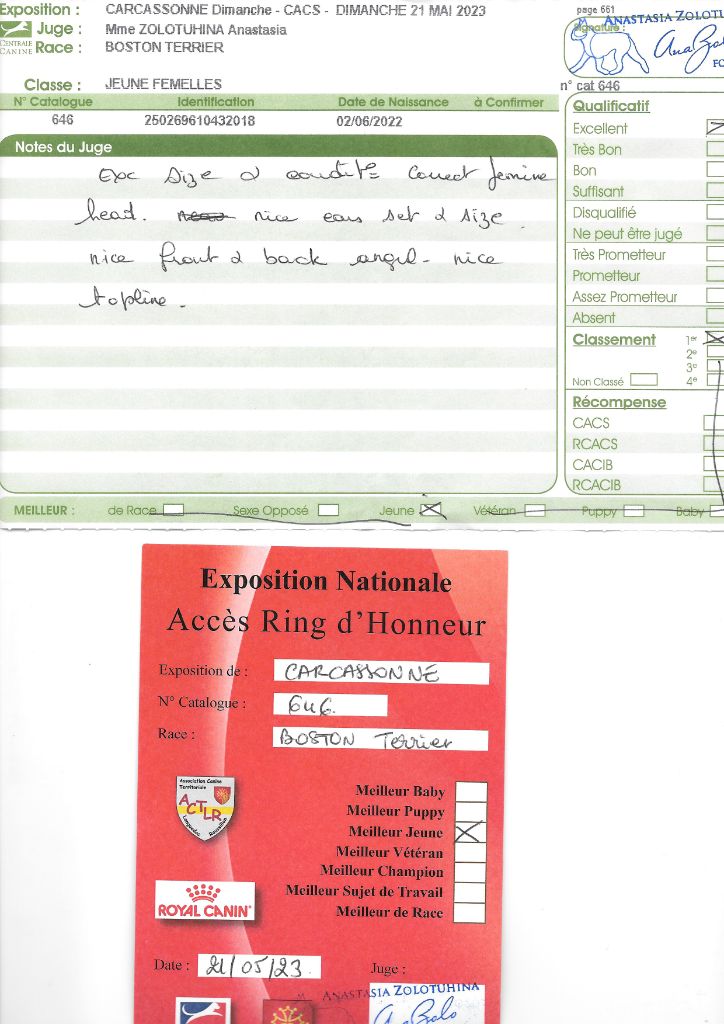 Exposition : CARCASSONNE Dimanche - CACS - DIMANCHE 21 MAI 2023
page 661
CENTRALE CANINE
Juge : Mme ZOLOTUHINA Anastasia
Signature :
ANASTASIA ZOLOTU
Race : BOSTON TERRIER
FC
Classe : JEUNE FEMELLES
n° cat 646
N° Catalogue Identification Date de Naissance à Confirmer
646 250269610432018 02/06/2022
Qualificatif
Excellent
Très Bon
Bon
Suffisant
Disqualifié
Ne peut être jugé
Très Prometteur
Prometteur
Assez Prometteur
Absent
Classement 1er
2e
3e
Non Classé 4e
Récompense
CACS
RCACS
CACIB
RCACIB
Notes du Juge
Exc size & condit= correct feminine
head. nice ears set & size.
nice front & back angul- nice
topline.
MEILLEUR : de Race Sexe Opposé Jeune Vétéran Puppy Baby
Exposition Nationale
Accès Ring d'Honneur
Exposition de : CARCASSONNE
N° Catalogue : 646
Race : BOSTON Terrier
Association Canine
Territoriale
ACTLR
Languedoc Roussillon
ROYAL CANIN
Meilleur Baby
Meilleur Puppy
Meilleur Jeune
Meilleur Vétéran
Meilleur Champion
Meilleur Sujet de Travail
Meilleur de Race
Date : 21/05/23
Juge :
ANASTASIA ZOLOTUHINA